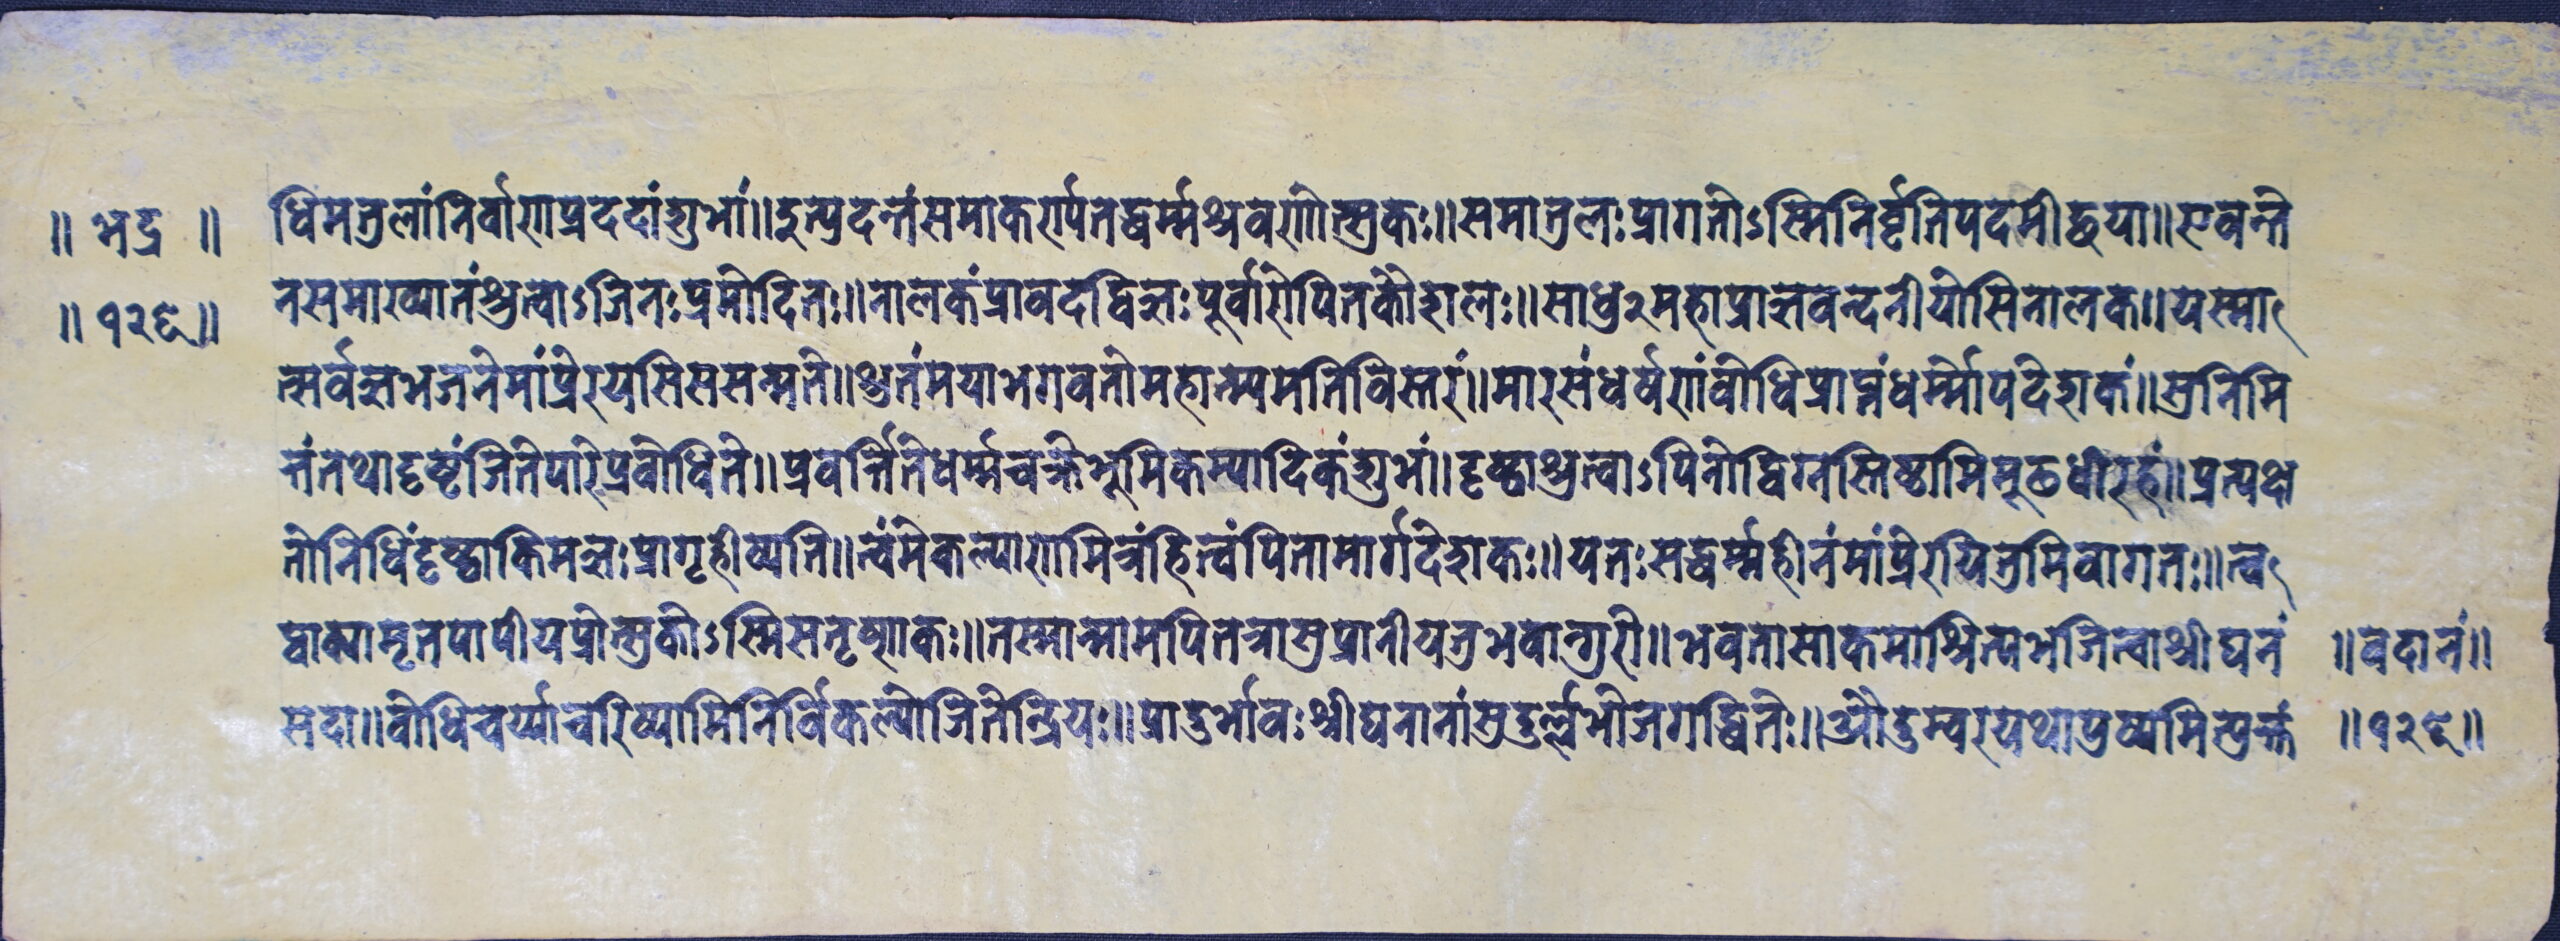 ॥ भद्र ॥ धिमतुलांनिर्वाणप्रददांशुभां॥इत्युदन्तंसमाकर्ण्यतद्धर्म्मश्रवणोत्सुकः॥समातुलःप्रागतोऽस्मिनिर्वृतिपदमीच्छया॥एवन्ते
॥ १२९॥ नसमाख्यातंश्रुत्वाऽजिनःप्रमोदितः॥नालकंप्रावदद्विज्ञःपूर्वारोपितकौशलः॥साधु२महाप्राज्ञवन्दनीयोसिनालक॥यस्मा
त्सर्वज्ञभजनेमांप्रेरयसिससन्मते॥श्रुतंमयाभगवतोमहात्म्यमतिविस्तरं॥मारसंधर्षणंबोधिप्राप्तंधर्म्मोपदेशकं॥सुनिमि
त्तंतथादृष्टंजितेपारेप्रबोधिते॥प्रवर्त्तितेधर्म्मचक्रेभूमिकम्पादिकंशुभां॥दृष्ट्वाश्रुत्वाऽपिनोद्विग्नस्तिष्ठामिमूढधीरहं॥प्रत्यक्ष
तोनिधिंदृष्ट्वाकिमज्ञःप्रागृहीष्यति॥त्वंमेकल्याणमित्रंहित्वंपितामार्गदेशकः॥यतःसद्धर्म्महीनंमांप्रेरयितुमिवागतः॥त्व
द्वाक्यामृतपापीयप्रोत्सुकोऽस्मिसतृष्णकः॥तस्मान्मामपितत्रासुप्रानीयतुभवान्गुरो॥भवतासाकमाश्रित्यभजित्वाश्रीघनं ॥वदानं॥
सदा॥बोधिचर्य्याचरिष्यामिनिर्विकल्पोजितेन्द्रियः॥प्रादुर्भावःश्रीघनानांसुदुर्ल्लभोजगद्धितेः॥औदुम्वरयथापुष्पमित्युक्तं ॥१२९॥